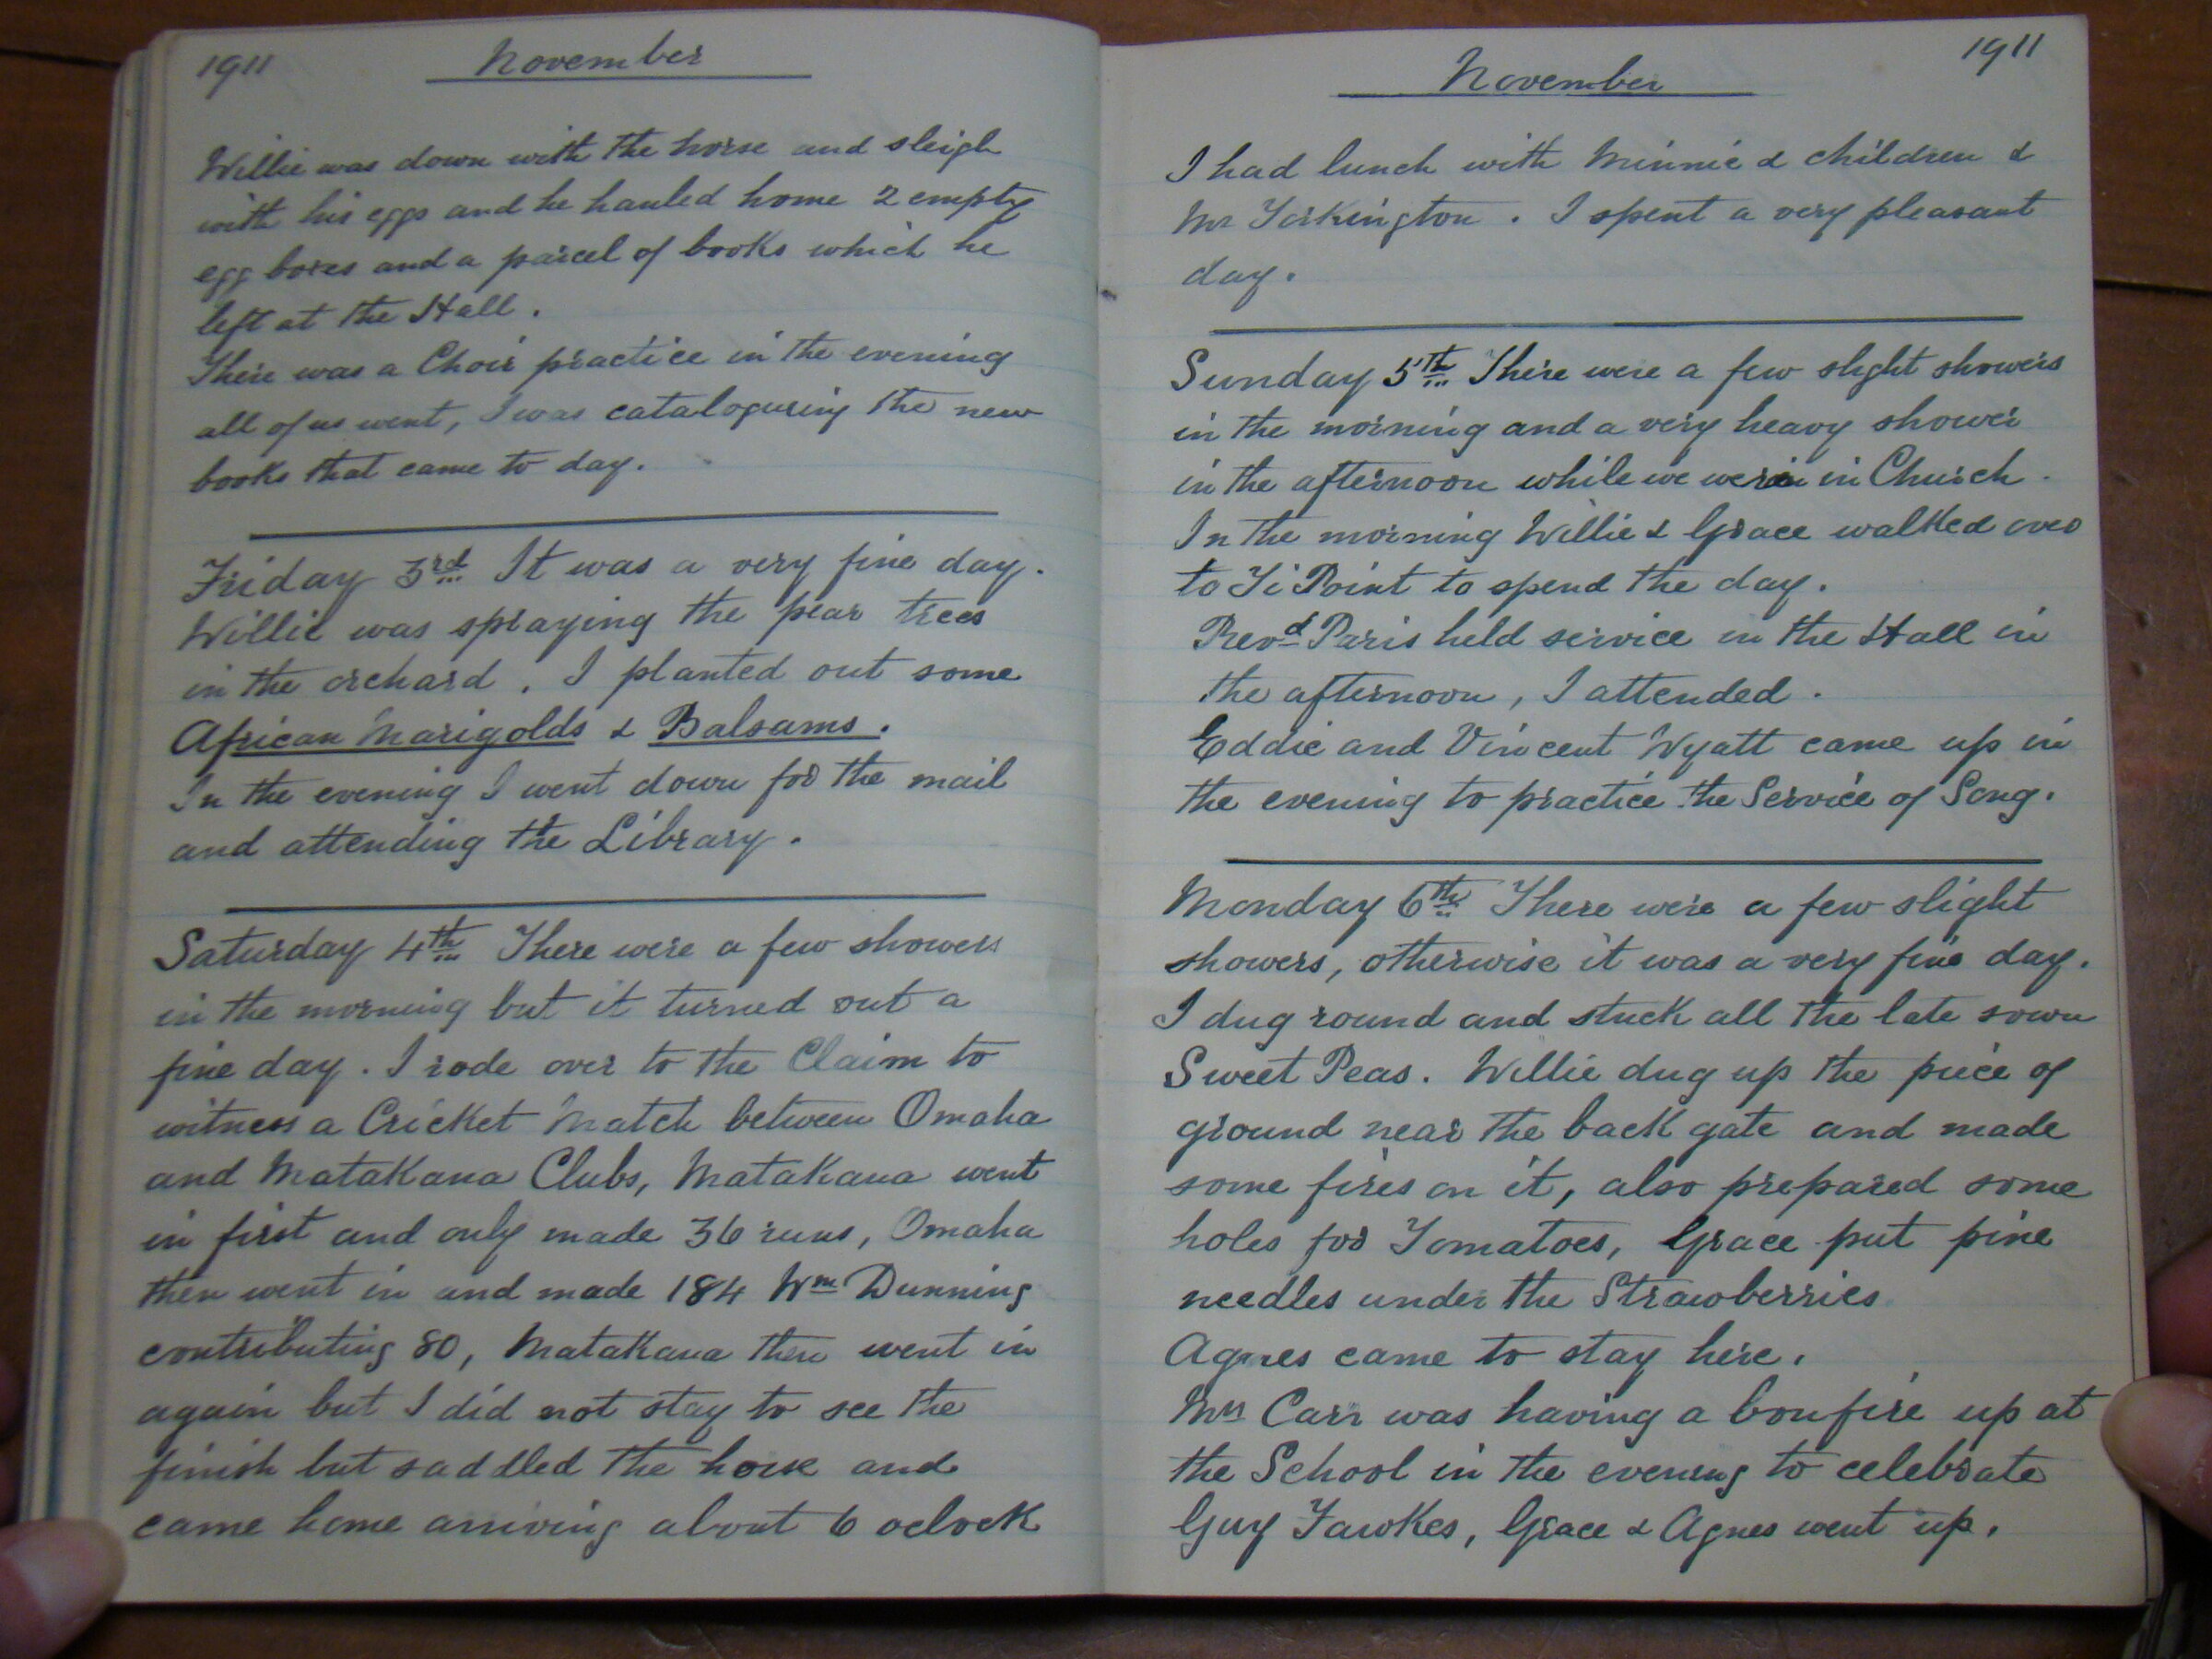 1911
November
Willie was down with the horse and sleigh
with his eggs and he hauled home 2 empty
egg boxes and a parcel of books which he
left at the Hall.
There was a Choir practice in the evening
all of us went, I was cataloguing the new
books that came to day.
Friday 3rd It was a very fine day.
Willie was spraying the pear trees
in the orchard. I planted out some
African Marigolds & Balsams.
In the evening I went down for the mail
and attending the Library.
Saturday 4th There were a few showers
in the morning but it turned out a
fine day. I rode over to the Claim to
witness a Cricket Match between Omaha
and Matakana Clubs, Matakana went
in first and only made 36 runs, Omaha
then went in and made 184 Wm Dunning
contributing 80, Matakana then went in
again but I did not stay to see the
finish but saddled the horse and
came home arriving about 6 oclock
November
1911
I had lunch with Minnie & children &
Mr Torkington. I spent a very pleasant
day.
Sunday 5th There were a few slight showers
in the morning and a very heavy shower
in the afternoon while we were in Church.
In the morning Willie & Grace walked over
to Ti Point to spend the day.
Revd Paris held service in the Hall in
the afternoon, I attended.
Eddie and Vincent Wyatt came up in
the evening to practice the Service of Song.
Monday 6th There were a few slight
showers, otherwise it was a very fine day.
I dug round and stuck all the late sown
Sweet Peas. Willie dug up the piece of
ground near the back gate and made
some fires on it, also prepared some
holes for Tomatoes, Grace put pine
needles under the Strawberries
Agnes came to stay here.
Mrs Carr was having a bonfire up at
the School in the evening to celebrate
Guy Fawkes, Grace & Agnes went up.